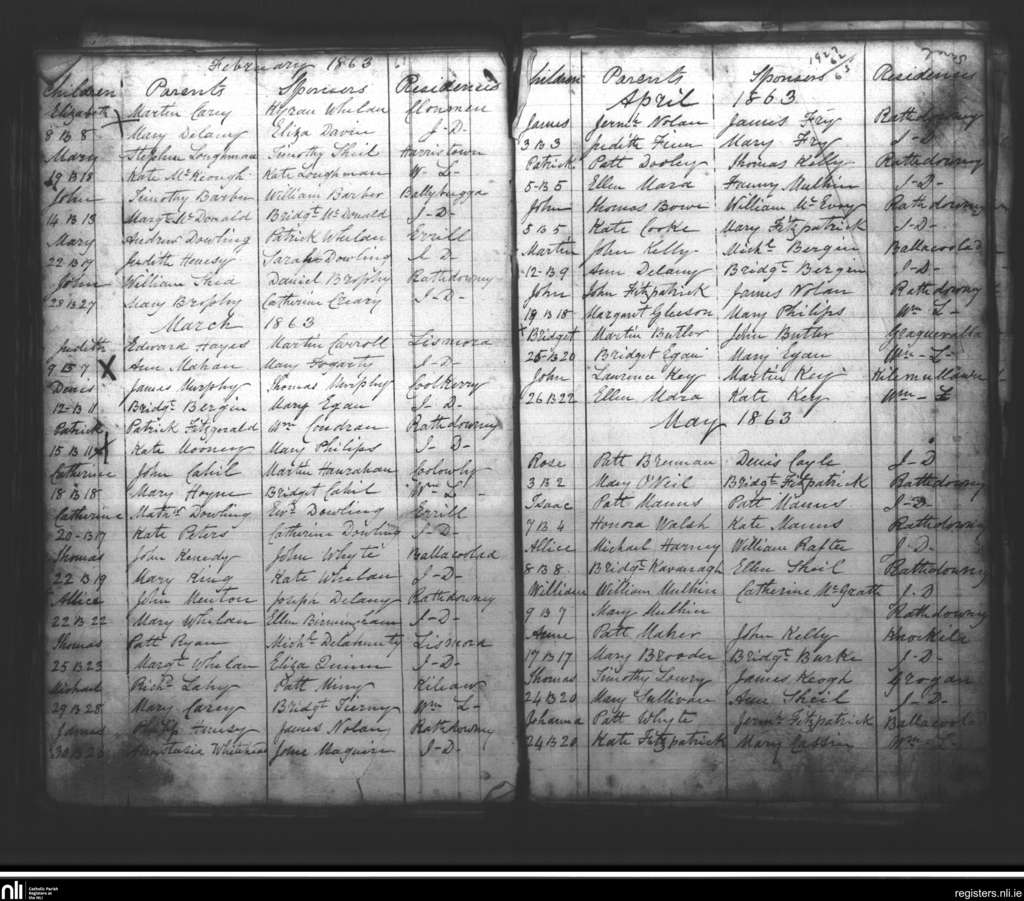 February 1863
Children Parents Sponsors Residences
Elizabeth Martin Carey Kyran Whelan Clonmen
9 B 8 Mary Delany Eliza Davin J-D-
Mary Stephen Loughman Timothy Sheil Harristown
19 B 18 Kate McKeough Kate Loughman W-L-
John Timothy Barber William Barber Ballybugga
14 B 13 Margt McDonald Bridgt McDonald J-D-
Mary Andrew Dowling Patrick Whelan Errill
22 B Judith Henesy Sarah Dowling J D-
John William Daniel Brophy Rathdowny
28 B 27 Mary Brophy Catherine Cleary J-D-
March 1863
Judith Edward Hayes Martin Carroll Lismora
9 B 7 Ann Mahan Mary Fogarty J-D-
Denis James Murphy Thomas Murphy Coolkerry
12-B 11 Bridgt Bergin Mary Egan J-D-
Patrick Patrick Fitzgerald Wm Condran Rathdowny
15 B 11 Kate Mooney Mary Philips J-D-
Catherine John Cahil Martin Hanrahan
18 B 18 Mary Hoyne Bridget Cahil Wm-L-
Catherine Mathw Dowling Ewd Dowling Errill
20-B 17 Kate Peters Catherine Dowling J-D-
Thomas John Kenedy John Whyte Ballacoolid
22 B 19 Mary King Kate Whelan J-D-
Allice John Menton Joseph Delany Rathdowney
22 B 22 Mary Whelan Ellen Birmingham J-D-
Thomas Patt Ryan Michl Delahunty Lismora
25 B 23 Margt Whelan Eliza Quinn J-D-
Michael Richd Lahy Patt Kilian
29 B 28 Mary Carey Bridgt Tierny Wm L-
James Philip Henesy James Nolan Rathdowny
30 B Anastatia John Maguire J-D-
Children Parents Sponsors Residences
April 1863
James Jermh Nolan James Fry Rathdowney
3 B 3 Judith Finn Mary Fry J-D-
Patrick Patt Dooley Thomas Kelly Rathdowny
5-B 5 Ellen Mara Fanny Mulhin J-D-
John Thomas Bowe William McEvoy Rathdowny
5 B 5 Kate Cooke Mary Fitzpatrick J-D-
Martin John Kelly Michl Bergin Ballacoolad
12-B 9 Ann Delany Bridgt Bergin J-D-
John John Fitzpatrick James Nolan Rathdowny
19 B 18 Margaret Gleeson Mary Philips Wm L-
Bridget Martin Butler John Butler
25-B 20 Bridget Egan Mary Egan Wm-L-
John Lawrence Key Martin Key
26 B 22 Ellen Mara Kate Key Wm-L
May 1863
Rose Patt Brennan Denis Coyle J-D
3 B 2 Mary O'Neil Bridgt Fitzpatrick Rathdowny
Isaac Patt Manns Patt Manns J-D-
7 B 4 Honora Walsh Kate Manns Rathdowny
Allice Michael Harney William Rafter J-D-
8 B 8 Bridgt Kavanagh Ellen Sheil Rathdowny
William William Mulhin Catherine McGrath J-D
9 B 7 Mary Mulhin Rathdowny
Anne Patt Maher John Kelly Knockeela
17 B 17 Mary Brooder Bridgt Burke J-D-
Thomas Timothy Lowry James Keogh Grogan
24 B 20 Mary Sullivan Ann Sheil J-D-
Johanna Patt Whyte Jermh Fitzpatrick Ballacoolid
24 B 20 Kate Fitzpatrick Mary Cassin Wm
nli Catholic Parish Registers at the NLI
registers.nli.ie